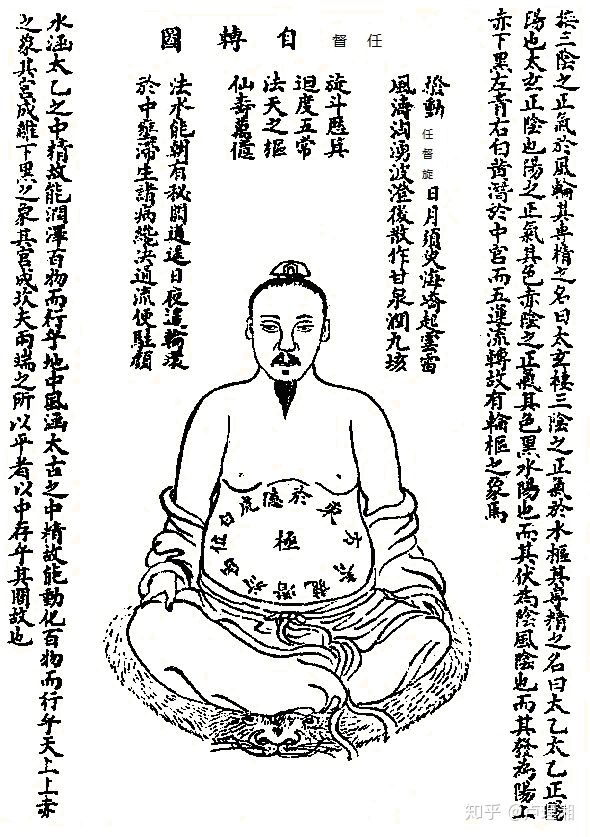 任督自轉圖
接三陰之正氣於風輪其專精之名曰太玄接三陰之正氣於水樞其專精之名曰太乙太乙正陽
陽也太玄正陰也陽之正氣其色赤陰之正氣其色黑水陽也而其伏為陰風陰也而其發為陽上
赤下黑左青右白黃潛於中宮而五運流轉故有輪樞之象焉
撥動任督旋日月須臾海嶠起雲雷
風濤洶湧波澄後散作甘泉潤九垓
旋斗歷箕
迴度五常
法天之樞
仙壽萬億
法水能朝有秘關逍遙日夜遣輪環
於中壅滯生諸病纔決通流便駐顏
極
水涵太乙之中精故能潤澤百物而行乎地中風涵太古之中精故能動化百物而行乎天上上赤
之象其宮成離下黑之象其宮成坎夫兩端之所以平者以中存乎其間故也
知乎